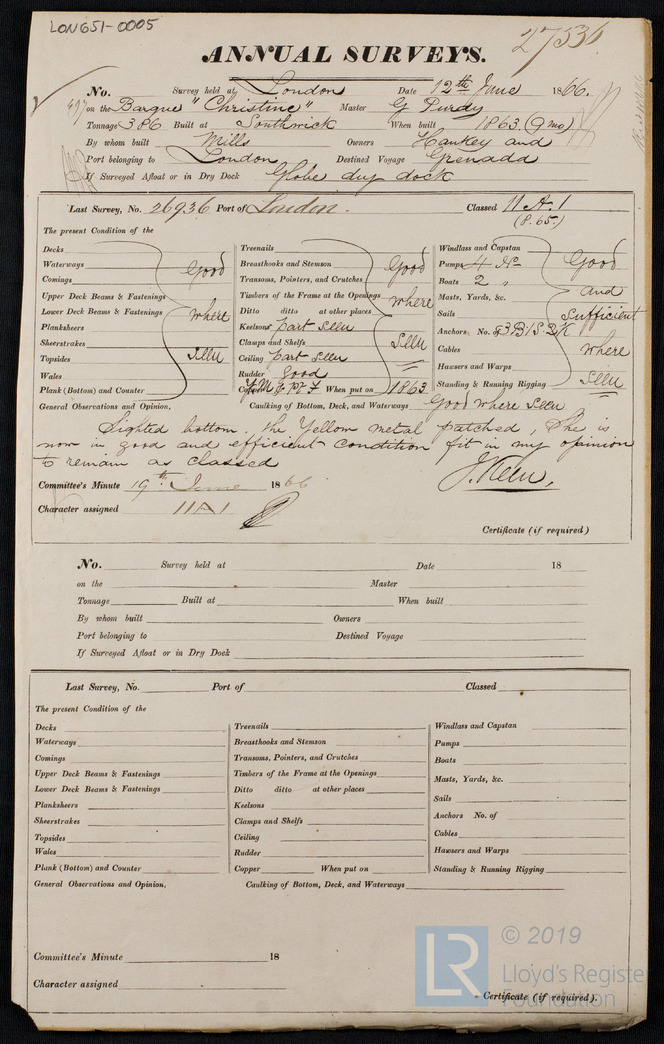 LON651-0005
27531
ANNUAL SURVEYS.
No. Survey held at London Date 12th June 1866.
on the Barque "Christine" Master G Purdy
Tonnage 386 Built at Southwick When built 1863 (9 mo)
By whom built Mills Owners Hankey and
Port belonging to London Destined Voyage Grenada
If Surveyed Afloat or in Dry Dock Globe dry dock
Last Survey, No. 26936 Port of London. Classed 11 A.1
(8.65.)
The present Condition of the
Decks
Waterways
Comings
Upper Deck Beams & Fastenings
Lower Deck Beams & Fastenings
Planksheers
Sheerstrakes
Topsides
Wales
Plank (Bottom) and Counter
Good
where
seen
Treenails
Breasthooks and Stemson
Transoms, Pointers, and Crutches
Timbers of the Frame at the Openings
Ditto ditto at other places
Keelsons part seen
Clamps and Shelfs
Ceiling part seen
Rudder good
Y.M When put on 1863
Good
where
seen
Windlass and Capstan
Pumps 4 No
Boats 2 "
Masts, Yards, &c.
Sails
Anchors No. of 3B 1S 2K
Cables
Hawsers and Warps
Standing & Running Rigging
Good
and
sufficient
where
seen
General Observations and Opinion, Caulking of Bottom, Deck, and Waterways Good where seen
Sighted bottom, the Yellow metal patched, She is
now in good and efficient condition fit in my opinion
to remain as classed
J. Keen,
Committee's Minute 19th June 1866
Character assigned 11A1
Certificate (if required)
No. Survey held at Date 18
on the Master
Tonnage Built at When built
By whom built Owners
Port belonging to Destined Voyage
If Surveyed Afloat or in Dry Dock
Last Survey, No. Port of Classed
The present Condition of the
Decks
Waterways
Comings
Upper Deck Beams & Fastenings
Lower Deck Beams & Fastenings
Planksheers
Sheerstrakes
Topsides
Wales
Plank (Bottom) and Counter
Treenails
Breasthooks and Stemson
Transoms, Pointers, and Crutches
Timbers of the Frame at the Openings
Ditto ditto at other places
Keelsons
Clamps and Shelfs
Ceiling
Rudder
Copper When put on
Windlass and Capstan
Pumps
Boats
Masts, Yards, &c.
Sails
Anchors No. of
Cables
Hawsers and Warps
Standing & Running Rigging
General Observations and Opinion, Caulking of Bottom, Deck, and Waterways
Committee's Minute 18
Character assigned
Certificate (if required).
LR © 2019
Lloyd's Register
Foundation